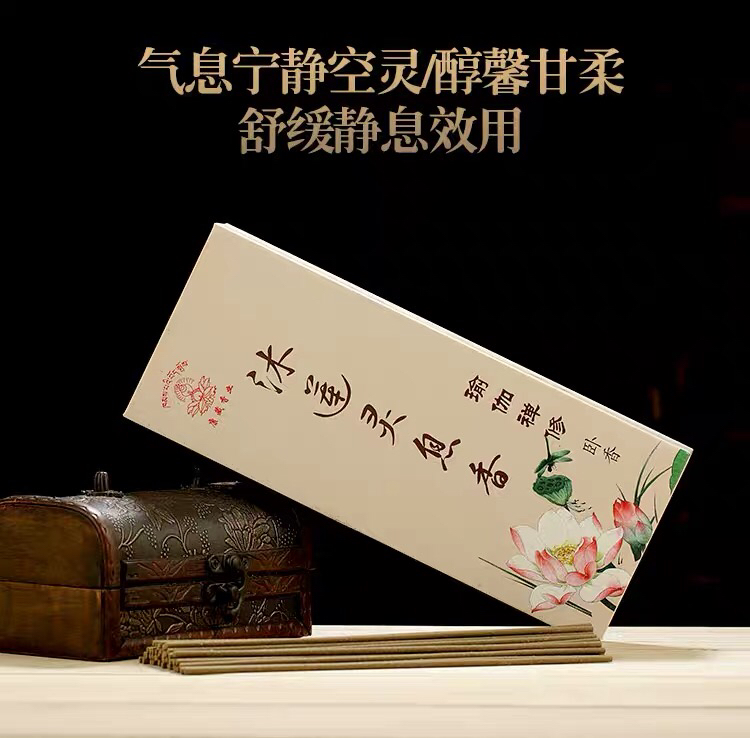 气息宁静空灵/醇馨甘柔
舒缓静息效用
沐莲灵鱼香
瑜伽禅修
卧香
康藏香业